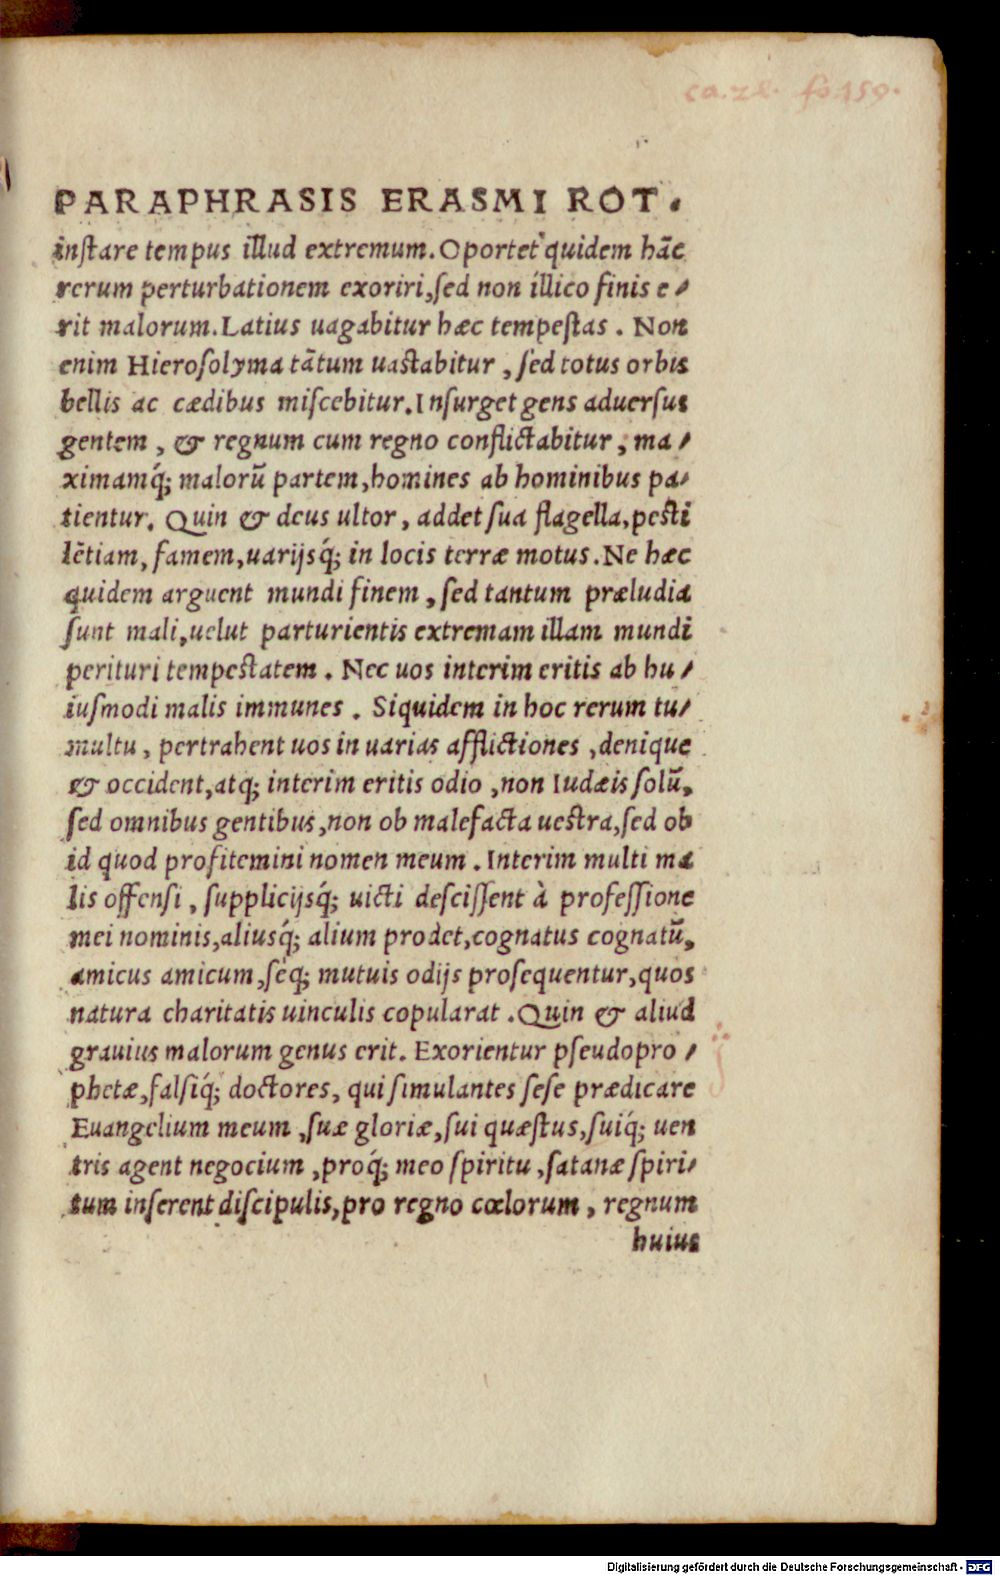 fo 159.
PARAPHRASIS ERASMI ROT.
inſtare tempus illud extremum. Oportet quidem hāc
rerum perturbationem exoriri, ſed non illico finis e⸗
rit malorum. Latius uagabitur hæc tempeſtas. Non
enim Hieroſolyma tātum uastabitur, ſed totus orbis
bellis ac cædibus miſcebitur. Inſurget gens aduerſus
gentem, & regnum cum regno conflictabitur, ma⸗
ximamq́; malorū partem, homines ab hominibus pa⸗
tientur. Quin & deus ultor, addet ſua flagella, pesti
lētiam, famem, uarijsq́; in locis terræ motus. Ne hæc
quidem arguent mundi finem, ſed tantum præludia
ſunt mali, uelut parturientis extremam illam mundi
perituri tempestatem. Nec uos interim eritis ab hu⸗
iuſmodi malis immunes. Siquidem in hoc rerum tu⸗
multu, pertrahent uos in uarias afflictiones, denique
& occident, atq; interim eritis odio, non Iudæis ſolū,
ſed omnibus gentibus, non ob malefacta uestra, ſed ob
id quod profitemini nomen meum. Interim multi ma
lis offenſi, ſupplicijsq́; uicti deſciſſent à profeſſione
mei nominis, aliusq́; alium prodet, cognatus cognatū,
amicus amicum, ſéq; mutuis odijs proſequentur, quos
natura charitatis uinculis copularat. Quin & aliud
grauius malorum genus erit. Exorientur pſeudopro⸗
phetæ, falſiq́; doctores, qui ſimulantes ſeſe prædicare
Euangelium meum, ſuæ gloriæ, ſui quæſtus, ſuiq́; uen
tris agent negocium, proq́; meo ſpiritu, ſatanæ ſpiri⸗
tum inſerent diſcipulis, pro regno cœlorum, regnum
huius
Digitalisierung gefördert durch die Deutsche Forschungsgemeinschaft - DFG